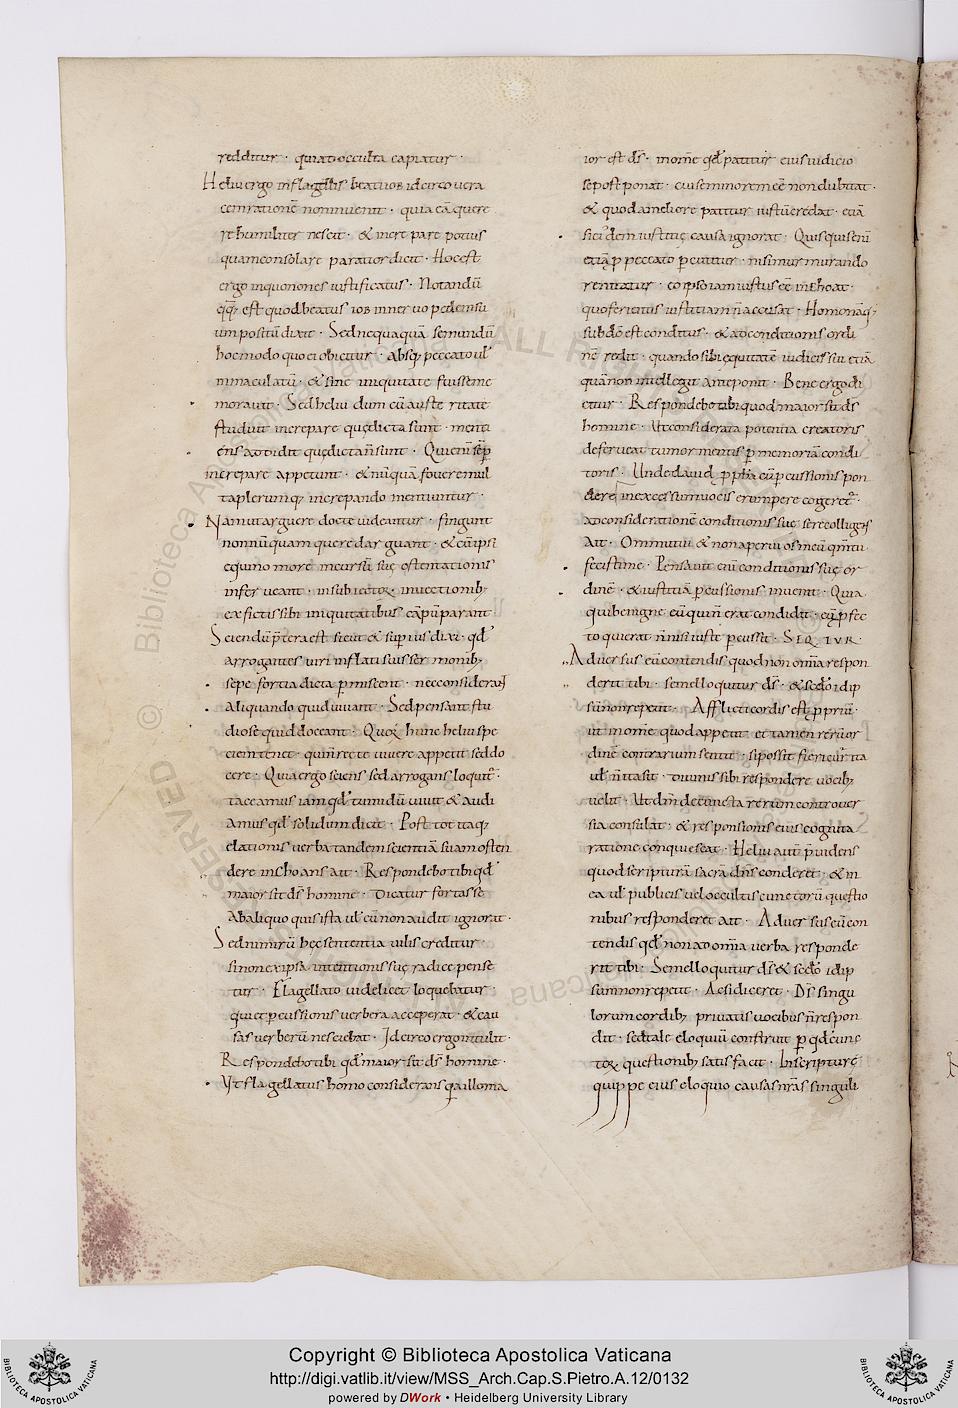 redditur · quia ti occulta capiatur ·
Heliu ergo in flagellis beati iob idcirco uera
cem rationē non inuenit · quia eā querere
humiliter nescit · & increpare potius
quam consolare paratior dicit · Hoc est
ergo in quo non es iustificatus · Notandū
q̄q; est quod beatus iob in neruo pedem su
um positū dixit · Sed nequaquā se mundū
hoc modo quo ei obicitur · absq; peccato ul̄
inmaculatū · & sine iniquitate fuisse me
morauit · Sed heliu dum eū austeritate
studuit increpare quę dicta sunt · menti
ens addidit quę dicta n̄ sunt · Qui enī sēp
increpare appetunt · & nūquā fouere mul
ta plerumq; increpando mentiuntur ·
Nam ut arguere docte uideantur · fingunt
nonnūquam quere dar guant · & eū ipsi
equino more incursū suę ostentationis
inferueant · in subiectoꝝ inuectionib;
ex fictis sibi iniquitatibus cāpū parant ·
Sciendū p̄terea est sicut & superius dixi · qd̄
arrogantes uiri inflati suis sermonib;
sepe fortia dicta p̄miscent · nec considerant
aliquando quid uiuant · Sed pensant stu
diose quid doceant · Quoꝝ hunc heliu spe
ciem tenet · qui n̄ recte uiuere appetit sed do
cere · Quia ergo sciens sed arrogans loquit̄ ·
taceamus iam qd̄ tumidū uiuit & audi
amus qd̄ solidum dicit · Post tot itaq;
elationis uerba tandem scientiā suam osten
dere inchoans ait · Respondebo tibi qd̄
maior sit ds̄ homine · Dicatur fortasse
ab aliquo quis ista ul̄ cū non audit ignorat ·
Sed nimirū hęc sententia uilis creditur ·
si non ex ipsa intentionis suę radice pense
tur · Flagellato uidelicet loquebatur ·
qui et percussionis uerbera acceperat · & cau
sas uerberū nesciebat · Idcirco ergo intulit ·
Respondebo tibi qd̄ maior sit ds̄ homine ·
Ut flagellatus homo considerans q̄a illo ma
ior est ds̄ · in omē qd̄ patitur eius iudicio
se postponat · cui se minorem eē non dubitat ·
& quod a meliore patitur iustū credat · etiā
si eiusdem iustitię causa ignorat · Quisquis enī
etiā p̄ peccato percutitur · nisi murmurando
renitatur · eo ipso iam iustus eē inchoat ·
quo ferientis iustitiam n̄ accusat · Homo nāq;
sub dō est conditus · & ad conditionis ordi
nē redit · quando sibi ęquitatē iudicis sui etiā
quā non intellegit anteponit · Bene ergo di
citur · Respondebo tibi quod maior sit ds̄
homine · Ut considerata potentia creatoris
deferueat tumor mentis per memoriam condi
toris · Unde dauid p̄pheta cū percussionis pon
dere in excessum uocis erumpere cogeret̄ ·
ad considerationē conditionis suę sere colligens
Ait · Ommutui & non aperui os meū qm̄ tu
fecisti me · Pensauit enī conditionis suę or
dinē · & iustitiā percussionis inuenit · Quia
qui benigne eū qui n̄ erat condidit · eū p̄fec
to qui erat n̄ nisi iuste percussit · SEQITUR ·
Aduersus eū contendis quod non omnia respon
derit tibi · semel loquitur ds̄ · & secdo id ip
sū non repetit · Afflicti cordis est propriū ·
ut in omē quod appetit et tamen rerū or
dinē contrarium sentit · si possit fieri cur ita
ul̄ n̄ ita sit · diuinis sibi respondere uocib;
uelit · Ut dm̄ de cuncta rerum controuer
sia consulat · & responsionis eius cognita
ratione conquiescat · Heliu autē p̄uidens
quod scripturā sacrā dn̄s conderet · & in
ea ul̄ publicis uel occultis cunctorū questio
nibus responderet ait · Aduersus eū con
tendis qd̄ non ad omnia uerba responde
rit tibi · Semel loquitur ds̄ & secdo id ip
sum non repetit · Ac si diceret · Ds̄ singu
lorum cordib; priuatis uocibus n̄ respon
dit · sed tale eloquiū construit per qd̄ cunc
toꝝ questionib; satis facit · In scripturę
quippe eius eloquio causas nr̄as singuli
Copyright © Biblioteca Apostolica Vaticana
http://digi.vatlib.it/view/MSS_Arch.Cap.S.Pietro.A.12/0132
powered by DWork • Heidelberg University Library